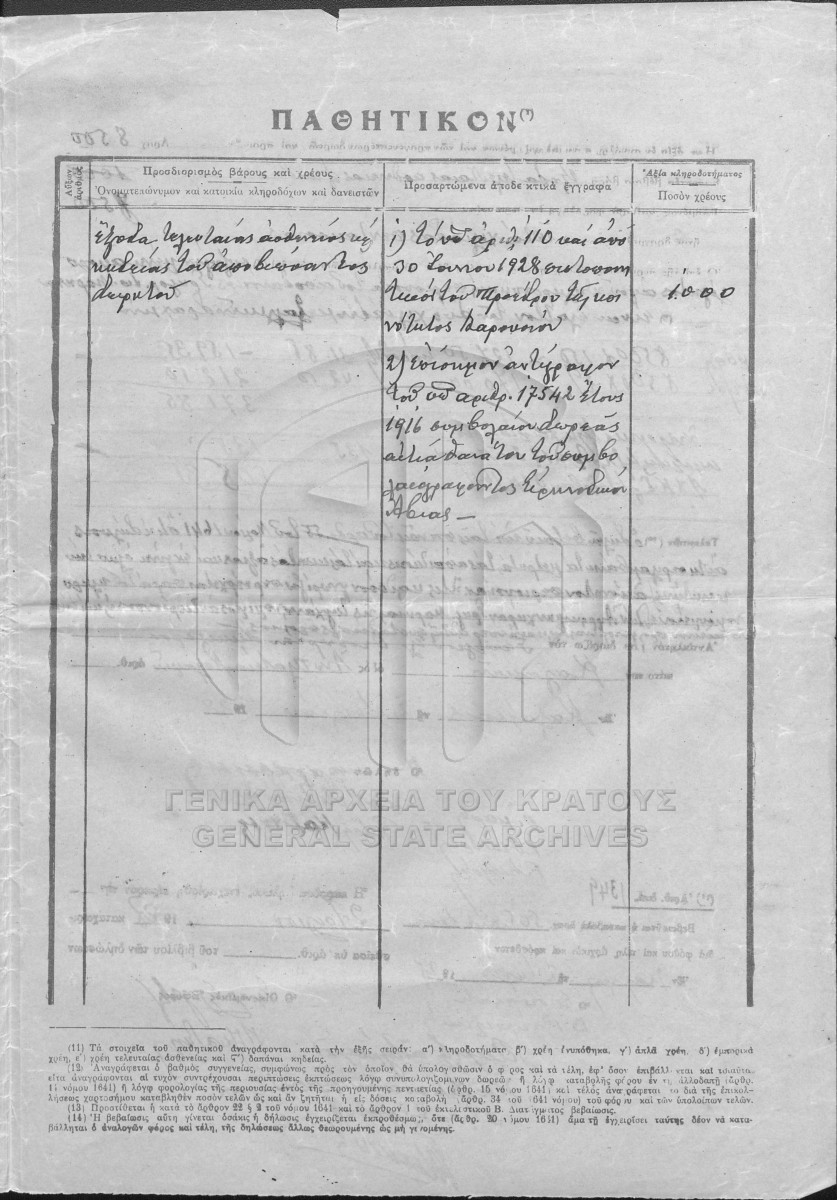 ΠΑΘΗΤΙΚΟΝ(")
Αὔξων ἀριθμὸς
Προσδιορισμὸς βάρους καὶ χρέους
Ὀνοματεπώνυμον καὶ κατοικία κληροδόχων καὶ δανειστῶν
Προσαρτώμενα ἀποδεικτικὰ ἔγγραφα
Ἀξία κληροδοτήματος
Ποσὸν χρέους
Ἔξοδα τελευταίας ἀσθενείας κ
κηδείας τοῦ ἀποβιώσαντος
δωρητοῦ
1) Τὸ ὑπ ἀριθ 110 καὶ ἀπὸ
30 Ἰουνίου 1928 πιστοποιη
τικὸν τοῦ Προέδρου τῆς κοι
νότητος
1000
2) Ἐπίσημον ἀντίγραφον
τοῦ ὑπ ἀριθ. 17542 ἔτους
1916 συμβολαίου δωρεᾶς
αἰτίᾳ θανάτου τοῦ συμβο
λαιογραφοῦντος Εἰρηνοδίκου
Ἀβίας —
ΓΕΝΙΚΑ ΑΡΧΕΙΑ ΤΟΥ ΚΡΑΤΟΥΣ
GENERAL STATE ARCHIVES
(11) Τὰ στοιχεῖα τοῦ παθητικοῦ ἀναγράφονται κατὰ τὴν ἑξῆς σειράν: α') κληροδοτήματα, β') χρέη ἐνυπόθηκα, γ') ἁπλᾶ χρέη, δ') ἐμπορικὰ
χρέη, ε') χρέη τελευταίας ἀσθενείας καὶ ϛ') δαπάναι κηδείας.
(12) Ἀναγράφεται ὁ βαθμὸς συγγενείας, συμφώνως πρὸς τὸν ὁποῖον θὰ ὑπολογισθῶσιν ὁ φόρος καὶ τὰ τέλη, ἐφ' ὅσον ἐπιβάλλονται καὶ τοιαῦτα,
εἶτα ἀναγράφονται αἱ τυχὸν συντρέχουσαι περιπτώσεις ἐκπτώσεως λόγῳ συνυπολογιζομένων δωρεῶν ἢ λόγῳ καταβολῆς φόρου ἐν τῇ ἀλλοδαπῇ (ἄρθρ.
17 νόμου 1641) ἢ λόγῳ φορολογίας τῆς περιουσίας ἐντὸς τῆς προηγουμένης πενταετίας (ἄρθρ. 15 νόμου 1641) καὶ τέλος ἀναγράφεται τὸ διὰ τῆς ἐπικολ-
λήσεως χαρτοσήμου καταβληθὲν ποσὸν τελῶν ὡς καὶ ἂν ζητῆται ἡ εἰς δόσεις καταβολὴ (ἄρθρ. 34 τοῦ 1641 νόμου) τοῦ φόρου καὶ τῶν ὑπολοίπων τελῶν.
(13) Προστίθεται ἡ κατὰ τὸ ἄρθρον 22 § 2 τοῦ νόμου 1641 καὶ τὸ ἄρθρον 1 τοῦ ἐκτελεστικοῦ Β. Διατάγματος βεβαίωσις.
(14) Ἡ βεβαίωσις αὕτη γίνεται ὁσάκις ἡ δήλωσις ἐγχειρίζεται ἐκπροθέσμως, ὅτε (ἄρθρ. 20 νόμου 1641) ἅμα τῇ ἐγχειρίσει ταύτης δέον νὰ κατα-
βάλληται ὁ ἀναλογῶν φόρος καὶ τέλη, τῆς δηλώσεως ἄλλως θεωρουμένης ὡς μὴ γενομένης.